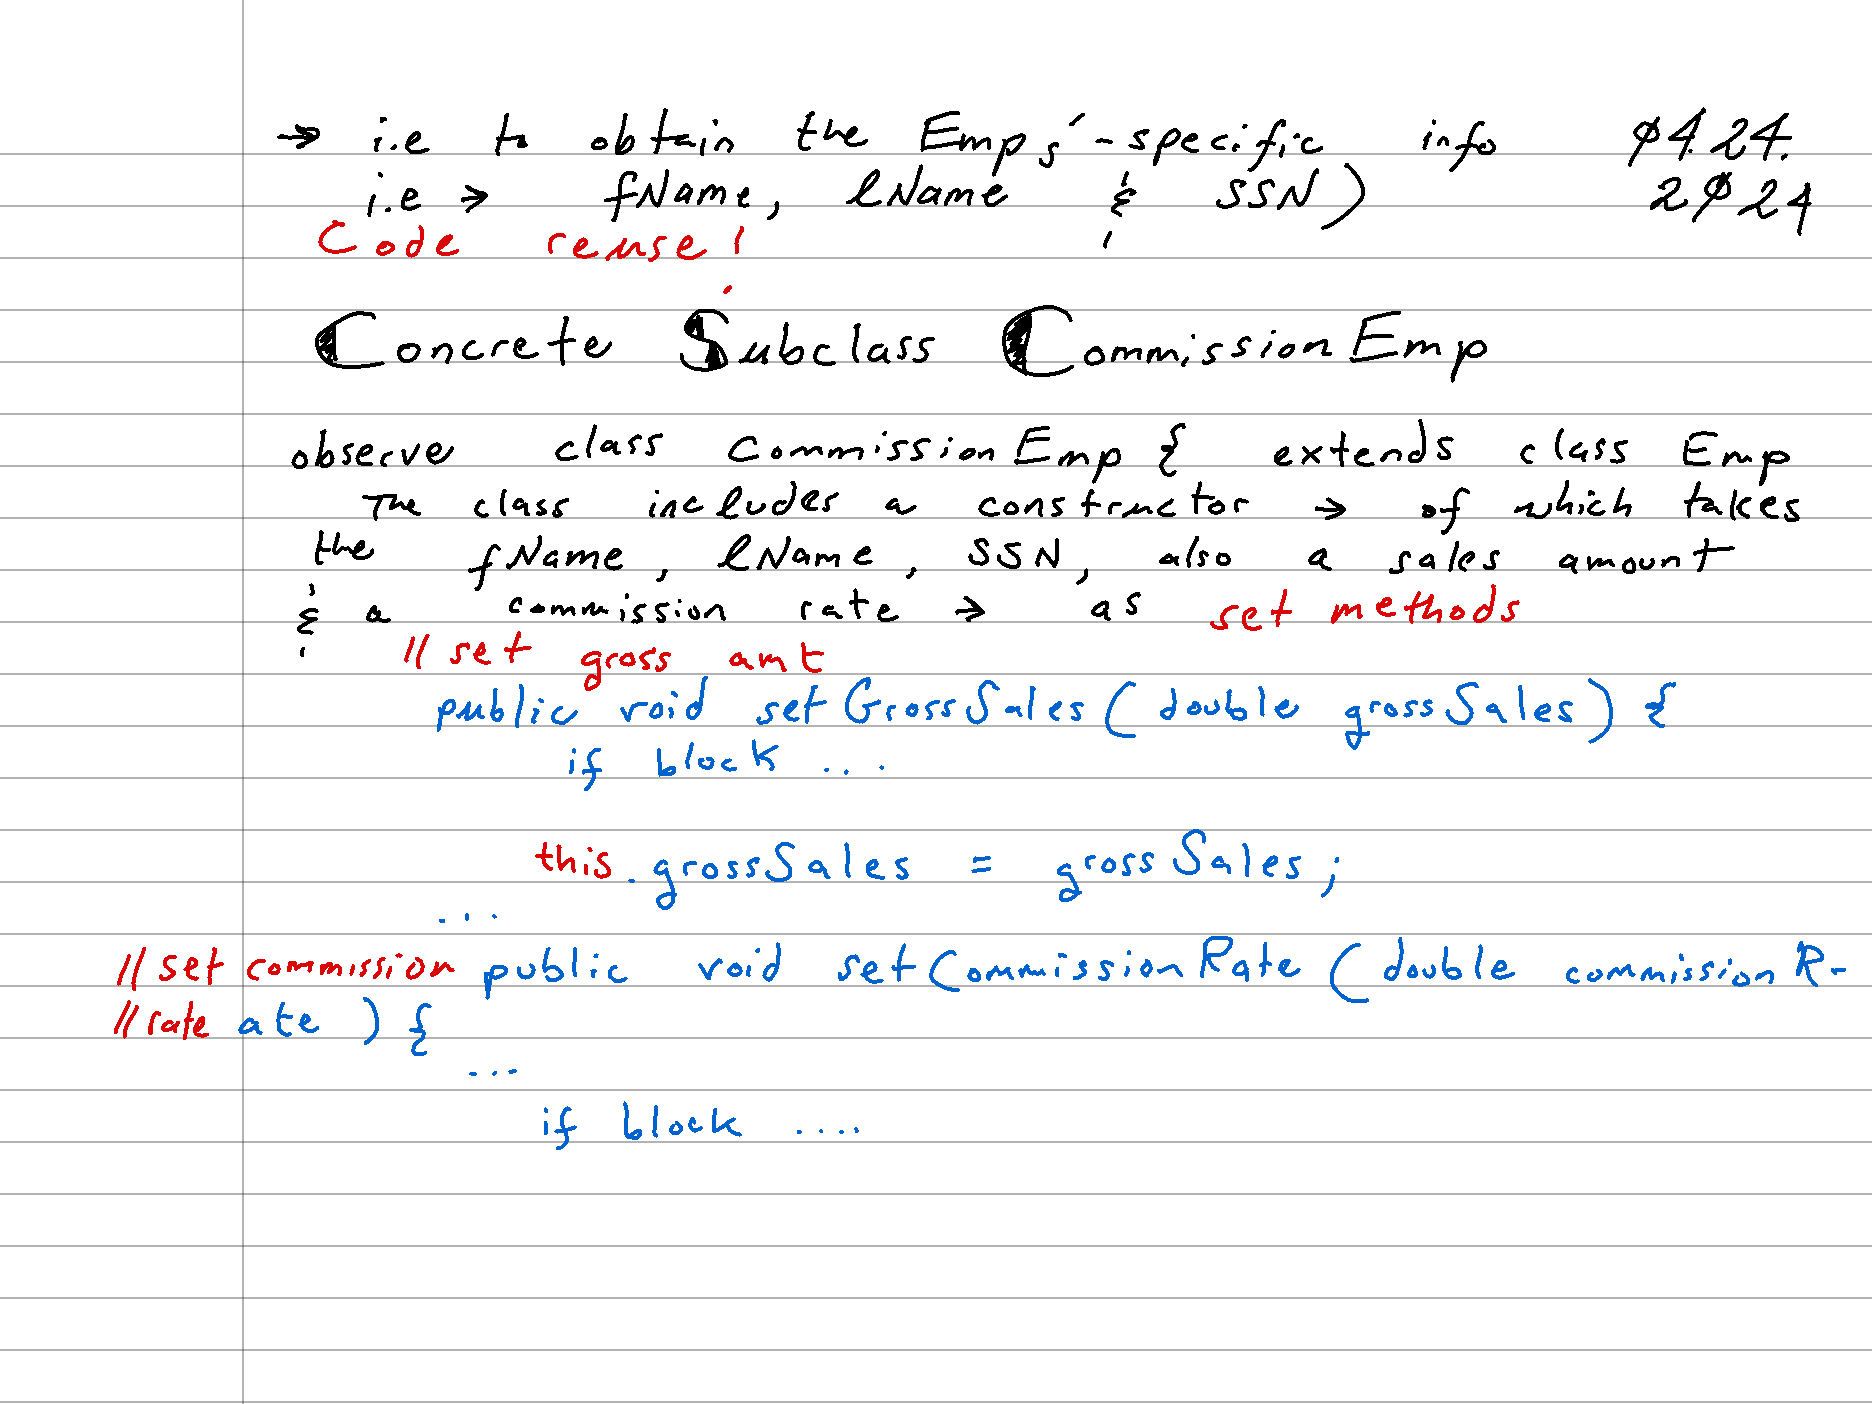 → i.e to obtain the Emps'-specific info 04.24.
i.e → fName, lName & SSN) 2024
Code reuse!
Concrete Subclass CommissionEmp
observe class CommissionEmp { extends class Emp
The class includes a constructor → of which takes
the fName, lName, SSN, also a sales amount
& a commission rate → as set methods
// set gross amt
public void setGrossSales(double grossSales) {
if block ...
this.grossSales = grossSales;
...
// set commission public void setCommissionRate (double commissionR-
// rate ate ) {
...
if block ....